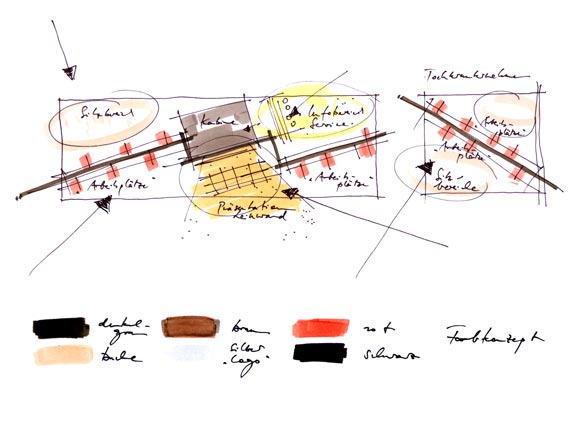 Sitzbereich
Kabine
Infobereich
Service
Arbeitsplätze
Arbeitsplätze
Präsentation
Leinwand
Arbeits-
plätze
Arbeits-
plätze
Sitz-
bereiche
dunkel-
grau
braun
rot
Farbkonzept
buche
Silber
"Logo"
schwarz